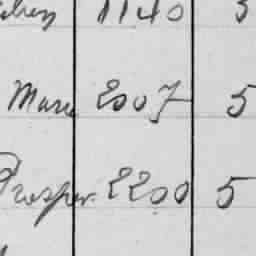 1140 5
Marie 2007 5
Prosper. 2200 5